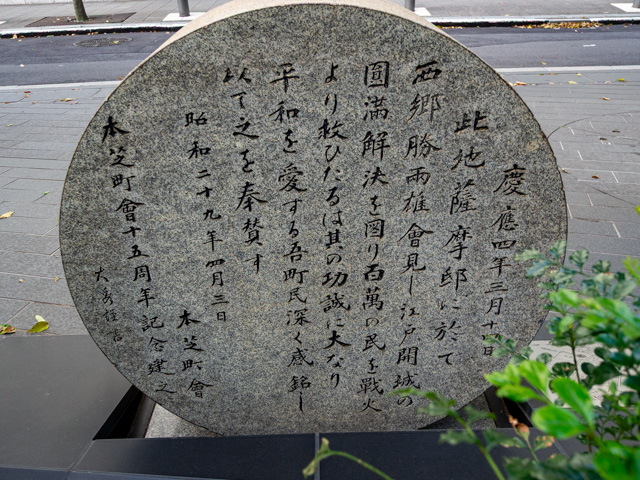 慶應四年三月十四日
此地薩摩邸に於て
西郷勝両雄會見し江戸開城の
圓満解決を図り百萬の民を戦火
より救ひたるは其の功誠に大なり
平和を愛する吾町民深く感銘し
以て之を奉賛す
昭和二十九年四月三日
本芝町會
本芝町會十五周年記念建之